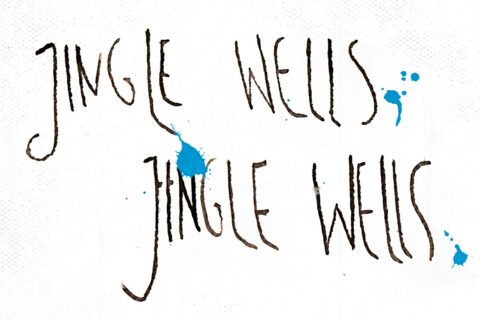 JINGLE WELLS,
JINGLE WELLS.